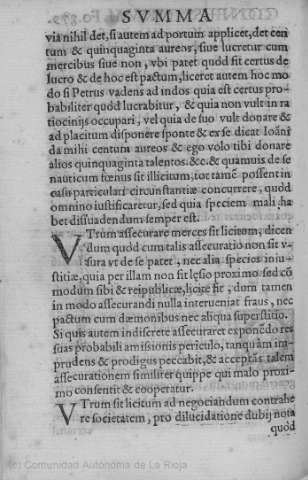 SVMMA
via nihil det, si autem ad portum applicet, det cen
tum & quinquaginta aureos, siue lucretur cum
mercibus siue non, vbi patet quòd sit certus de
lucro & de hoc est pactum, liceret autem hoc mo
do si Petrus vadens ad indos quia est certus pro-
babiliter quòd lucrabitur, & quia non vult in ra
tiocinijs occupari, vel quia de suo vult donare &
ad placitum disponere sponte & ex se dicat Ioāni
da mihi centum aureos & ego volo tibi donare
alios quinquaginta talentos. &c. & quamuis de se
nauticum fœnus sit illicitum, tot tamē possent in
casu particulari circunstantiæ concurrere, quod
omnino iustificaretur, sed quia speciem mali, ha
bet dissuadendum semper est.
VTrum assecurare merces sit licitum, dicen
dum quòd cum talis assecuratio non sit v-
sura vt de se patet, nec alia species iniu-
stitiæ, quia per illam non sit lęsio proximi sed cō
modum sibi & reipublicæ, licite fit, dum tamen
in modo assecurandi nulla interueniat fraus, nec
pactum cum dæmonibus nec aliqua superstitio.
Si quis autem indiscrete assecuraret exponēdo res
suas probabili amissionis periculo, tanquàm im
prudens & prodigus peccabit, & acceptās talem
assecurationem similiter quippe qui malo proxi-
mo consentit & cooperatur.
VTrum sit licitum ad negociandum contrahe
re societatem, pro dilucidatione dubij nota
quòd
(c) Comunidad Autónoma de La Rioja